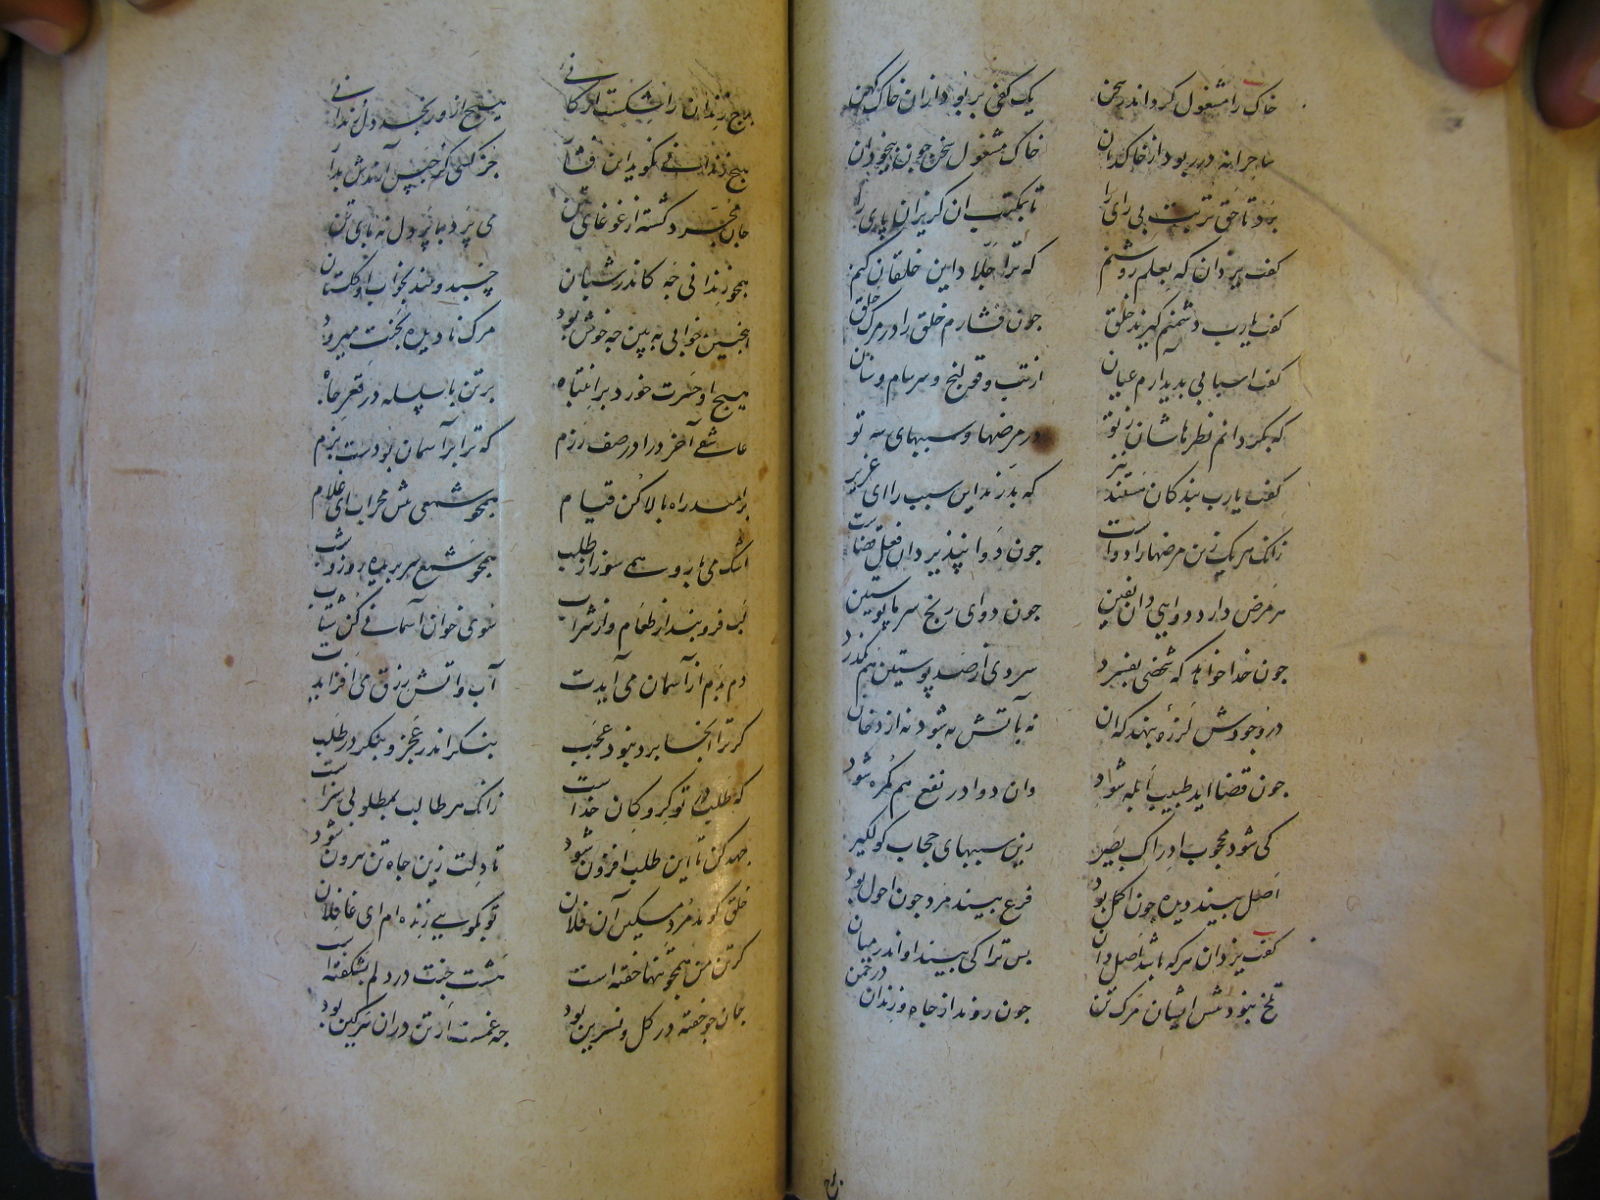 خاک را مشغول کرد اندر سخن یک کفی بربود ازان خاک کهن
ساحرانه در ربود از خاکدان خاک مشغول سخن چون بیخودان
برد تا حق تربت بی رای را تا بمکتب ان کریزان پای را
کفت یزدان که بعلم روشنم که ترا جلاد این خلقان کنم
کفت یارب دشمنم کیرند خلق چون فشارم خلق را در مرک حلق
کفت اسبابی بدید ارم عیان از تب و قولنج و سرسام و سنان
که بکردانم نظرهاشان ز تو در مرضها و سببهای سه تو
کفت یارب بندکان هستند نیز که بدرند این سبب را ای عزیز
زانک هر یک زین مرضها را دواست چون دوا نپذیرد ان فعل قضاست
هر مرض دارد دوایی دان یقین چون دوای رنج سرما پوستین
چون خدا خواهد که شخصی بفسرد سردی از صد پوستین هم بکذرد
در وجودش لرزه بنهد که ان نه بآتش به شود نه از دخان
چون قضا اید طبیب ابله شود وان دوا در نفع هم کمره شود
کی شود محجوب ادراک بصیر زین سببهای حجاب کول کیر
اصل بیند دیده چون اکمل بود فرع بیند مرد چون احول بود
کفت یزدان هرکه باشد اصل دان بس ترا کی بیند او اندر میان
تلخ نبود پیش ایشان مرک تن چون روند از چاه و زندان در چمن
برج زندان را شکست ارکانی هیچ ازو رنجد دل زندانی
هیچ زندانی نکوید این فشار جز کسی کز حبس آرندش بدار
جان مجرد کشته از غوغای تن می پرد با پر دل نه پای تن
همچو زندانی چه کاندر شبان خسبد و بیند بخواب او کلستان
اینچنین خوابی ببین چه خوش بود مرک نادیده بجنت میرود
هیچ او حسرت خورد بر انتباه بر تن با سلسله در قعر چاه
عاشقی آخر درا در صف رزم که ترا بر آسمان بودست بزم
بر امید راه بالا کن قیام همچو شمعی پیش محراب ای غلام
اشک می بار و همی سوز از طلب همچو شمع سر بریده روز و شب
لب فرو بند از طعام و از شراب سوی خوان آسمانی کن شتاب
دم بدم از آسمان می آیدت آب و آتش رزق می افزایدت
کر ترا انجا برد نبود عجب منکر اندر عجز و بنکر در طلب
که طلب در تو کروکان خداست زانک هر طالب بمطلوبی سزاست
جهد کن تا این طلب افزون شود تا دلت زین چاه تن بیرون شود
خلق کوید مرد مسکین آن فلان تو بکویی زنده ام ای غافلان
کر تن من همچو تنها خفته است هشت جنت در دلم بشکفته است
جان چو خفته در کل و نسرین بود چه غمست ار تن دران سرکین بود
برج